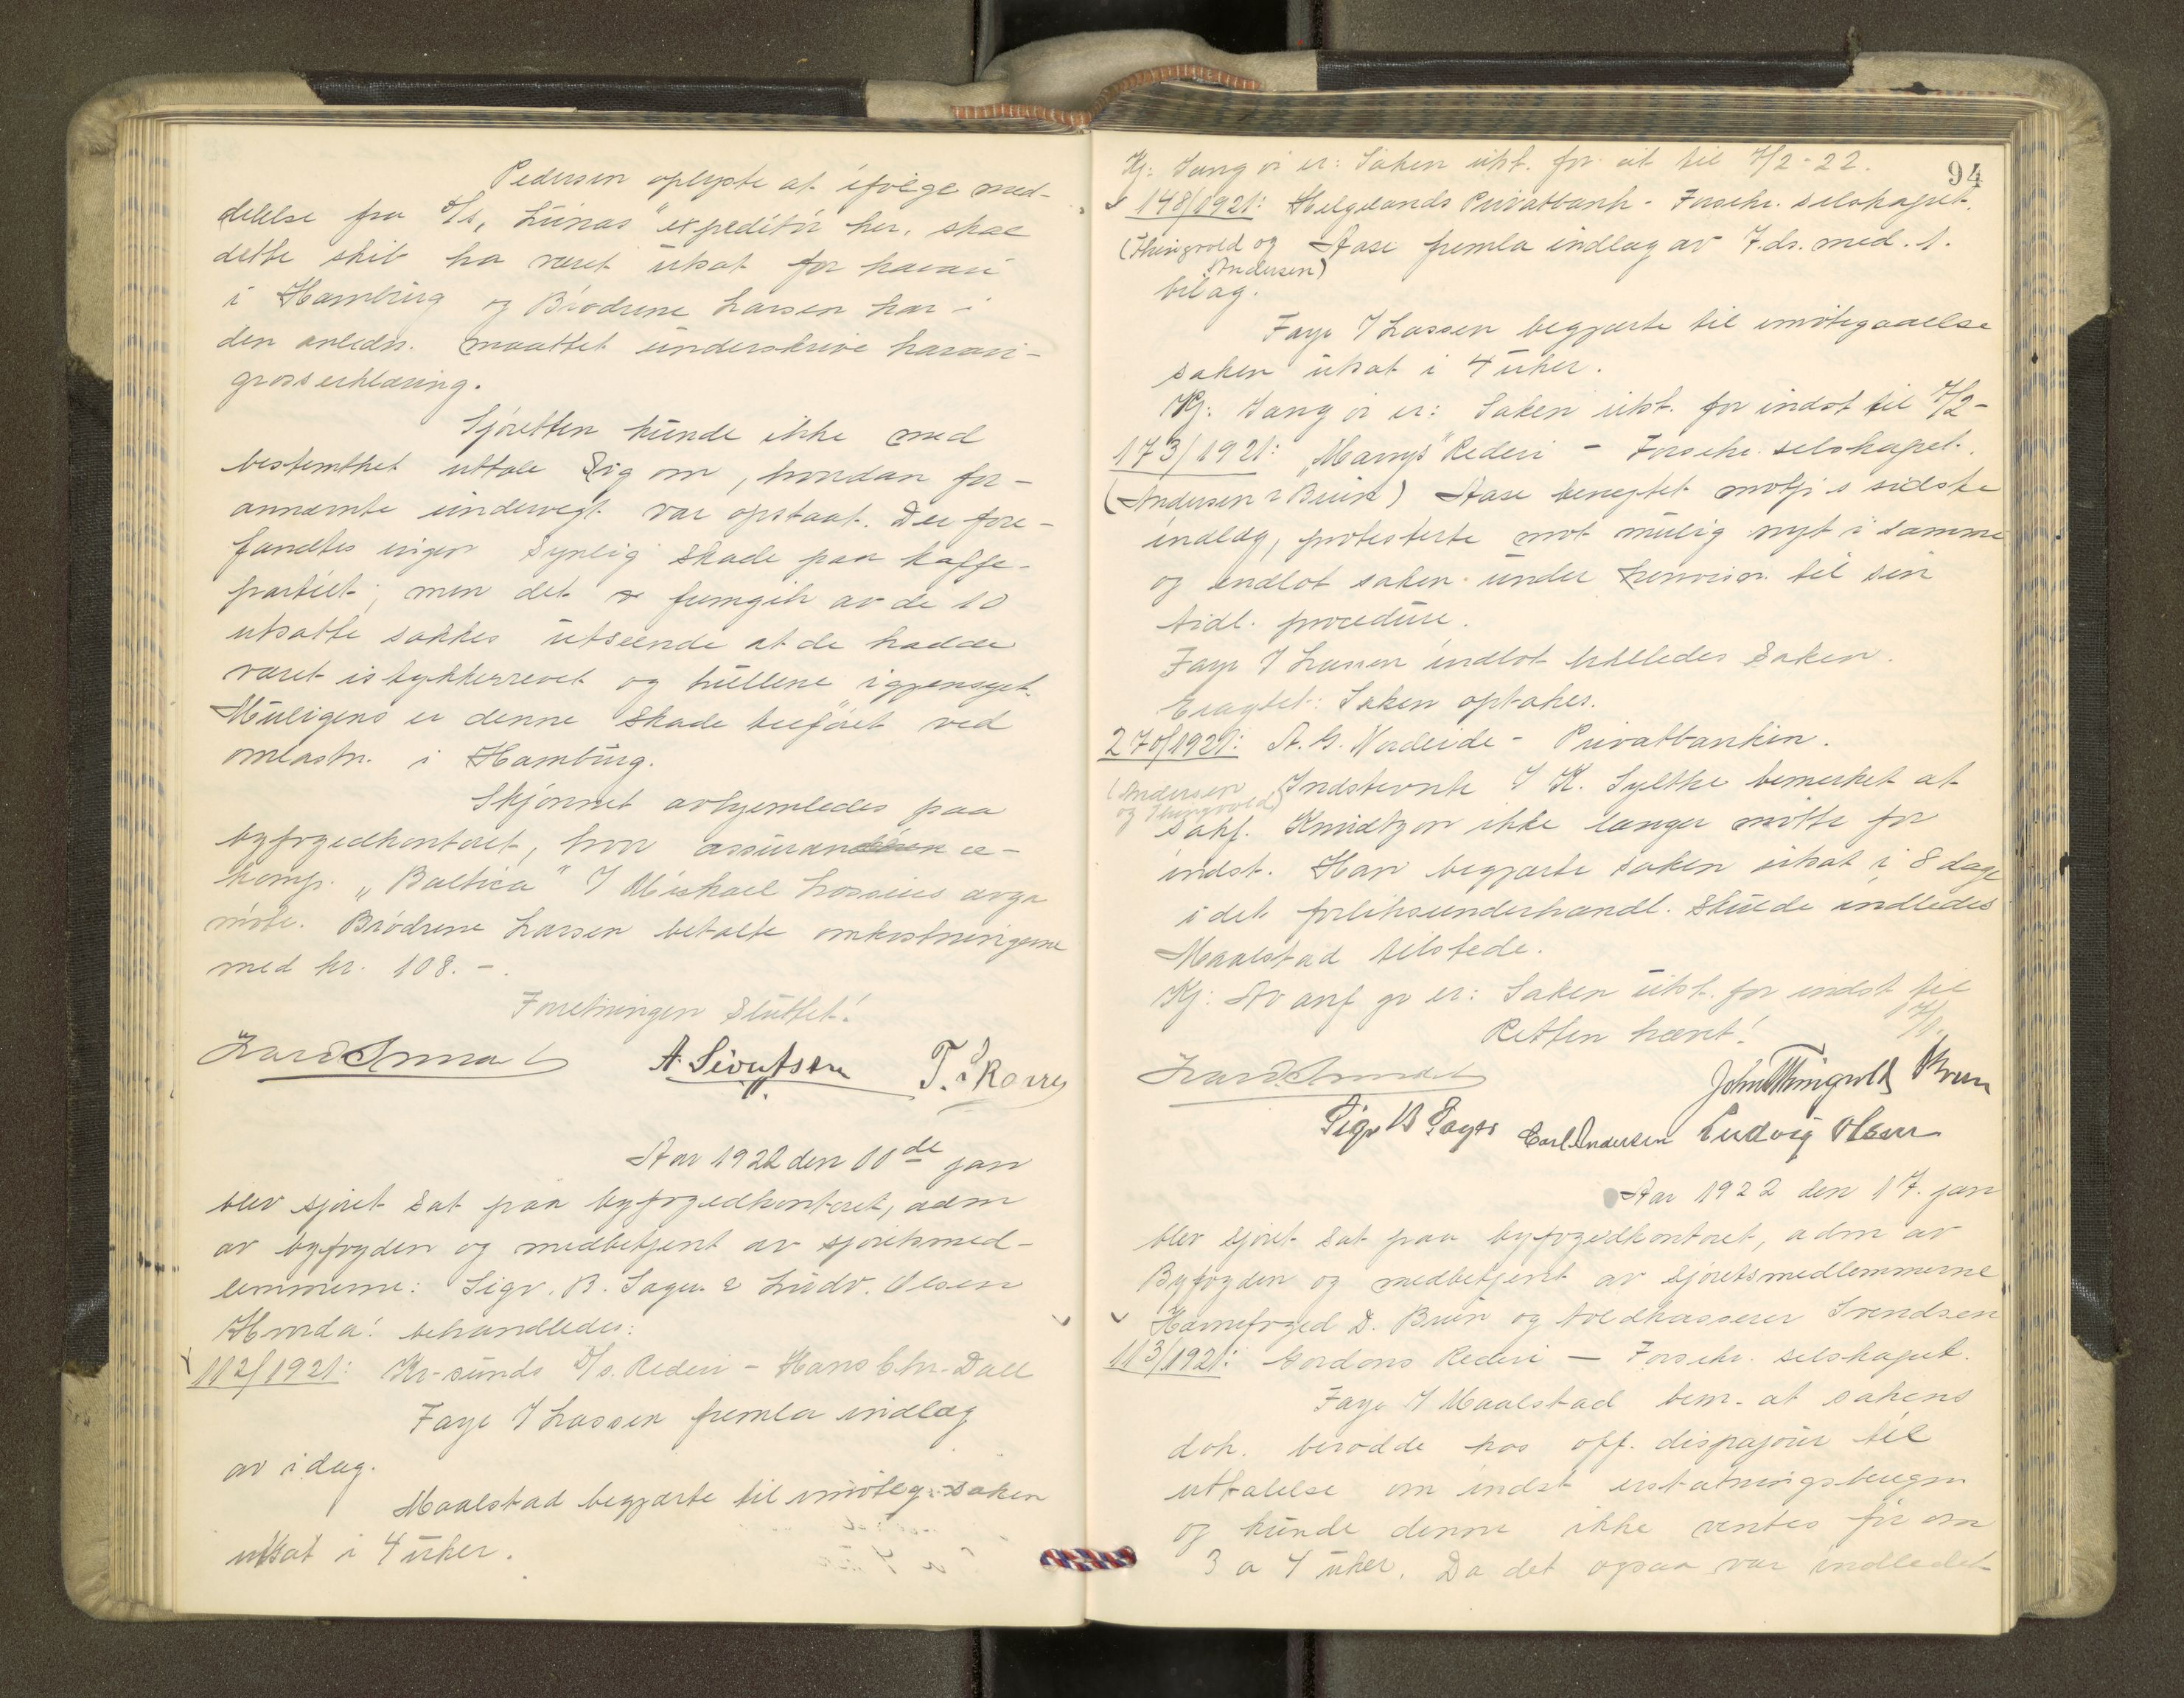 Pedersen oplyste at ifølge med-
delelse fra D/s "Lunas" expeditør her, skal
dette skib ha været utsat for havari
i Hamburg og Brødrene Larsen har i
den anledn. maattet underskrive havari-
grosserklæring.
Sjøretten kunde ikke med
bestemthet uttale sig om, hvordan for-
annævnte undervegt var opstaat. Der fore-
fandtes ingen synlig skade paa kaffe-
partiet; men det fremgik av de 10
utsatte sækkes utseende at de hadde
været istykkerrevet og hullene igjensyet.
Muligens er denne skade tilføiet ved
omlastn. i Hamburg.
Skjønnet avhjemledes paa
byfogedkontoret, hvor assurance-
komp. "Baltica" v/ Michael Lossius avga
møte. Brødrene Larsen betalte omkostningerne
med kr. 108.-
Forretningen sluttet!
A. Sivertsen
Aar 1922 den 10de jan
blev sjøret sat paa byfogedkontoret, adm
av byfogden og medbetjent av sjøretsmed-
lemmerne: Sigv. B. Sager & Ludv. Olsen
Hvorda: behandledes:
112/1921: Kr-sunds D/s. Rederi - Hans Chr. Dall
Faye v/ Lassen fremla indlæg
av idag.
Maalstad begjærte til imøteg. saken
utsat i 4 uker.
94
Kj: Saken utst. for at til 7/2-22.
148/1921: Helgelands Privatbank - Forsikr. selskapet.
(Thingvold og Aase fremla indlæg av 7. ds. med 1.
Andersen)
bilag.
Faye v/ Lassen begjærte til imøtegaaelse
saken utsat i 4 uker.
Kj: Saken utst. for indst til 7/2-
173/1921: "Marys" Rederi - Forsikr. selskapet.
(Andersen & Brun) Aase benegtet motp.s sidste
indlæg, protesterte mot mulig nyt i samme
og indlot saken under henvisn. til sin
tidl. procedure.
Faye v/ Lassen indlot likeledes saken.
Eragtet: Saken optakes.
270/1921: A. G. Nordeide - Privatbanken.
(Andersen Indstevnte v/ K. Syltke bemerket at
og Thingvold)
sakf. Knudtzon ikke længer møtte for
indst. Han begjærte saken utsat i 8 dage
idet forliksunderhandl. skulde indledes
Maalstad tilstede.
Kj: Av anf gr er: Saken utst. for indst til
17/1.
Retten hævet!
John Thingvold Brun
Sigv B Sager Carl Andersen Ludvig Olsen
Aar 1922 den 17. jan
blev sjøret sat paa byfogedkontoret, adm av
Byfogden og medbetjent av sjøretsmedlemmerne
Havnefoged D. Brun og toldkasserer Svendsen
113/1921: Gordons Rederi - Forsikr. selskapet.
Faye v/ Maalstad bem. at sakens
dok. berodde hos off. dispajour til
uttalelse om indst erstatningsberegn.
og kunde denne ikke ventes før om
3 a 4 uker. Da det ogsaa var indledet